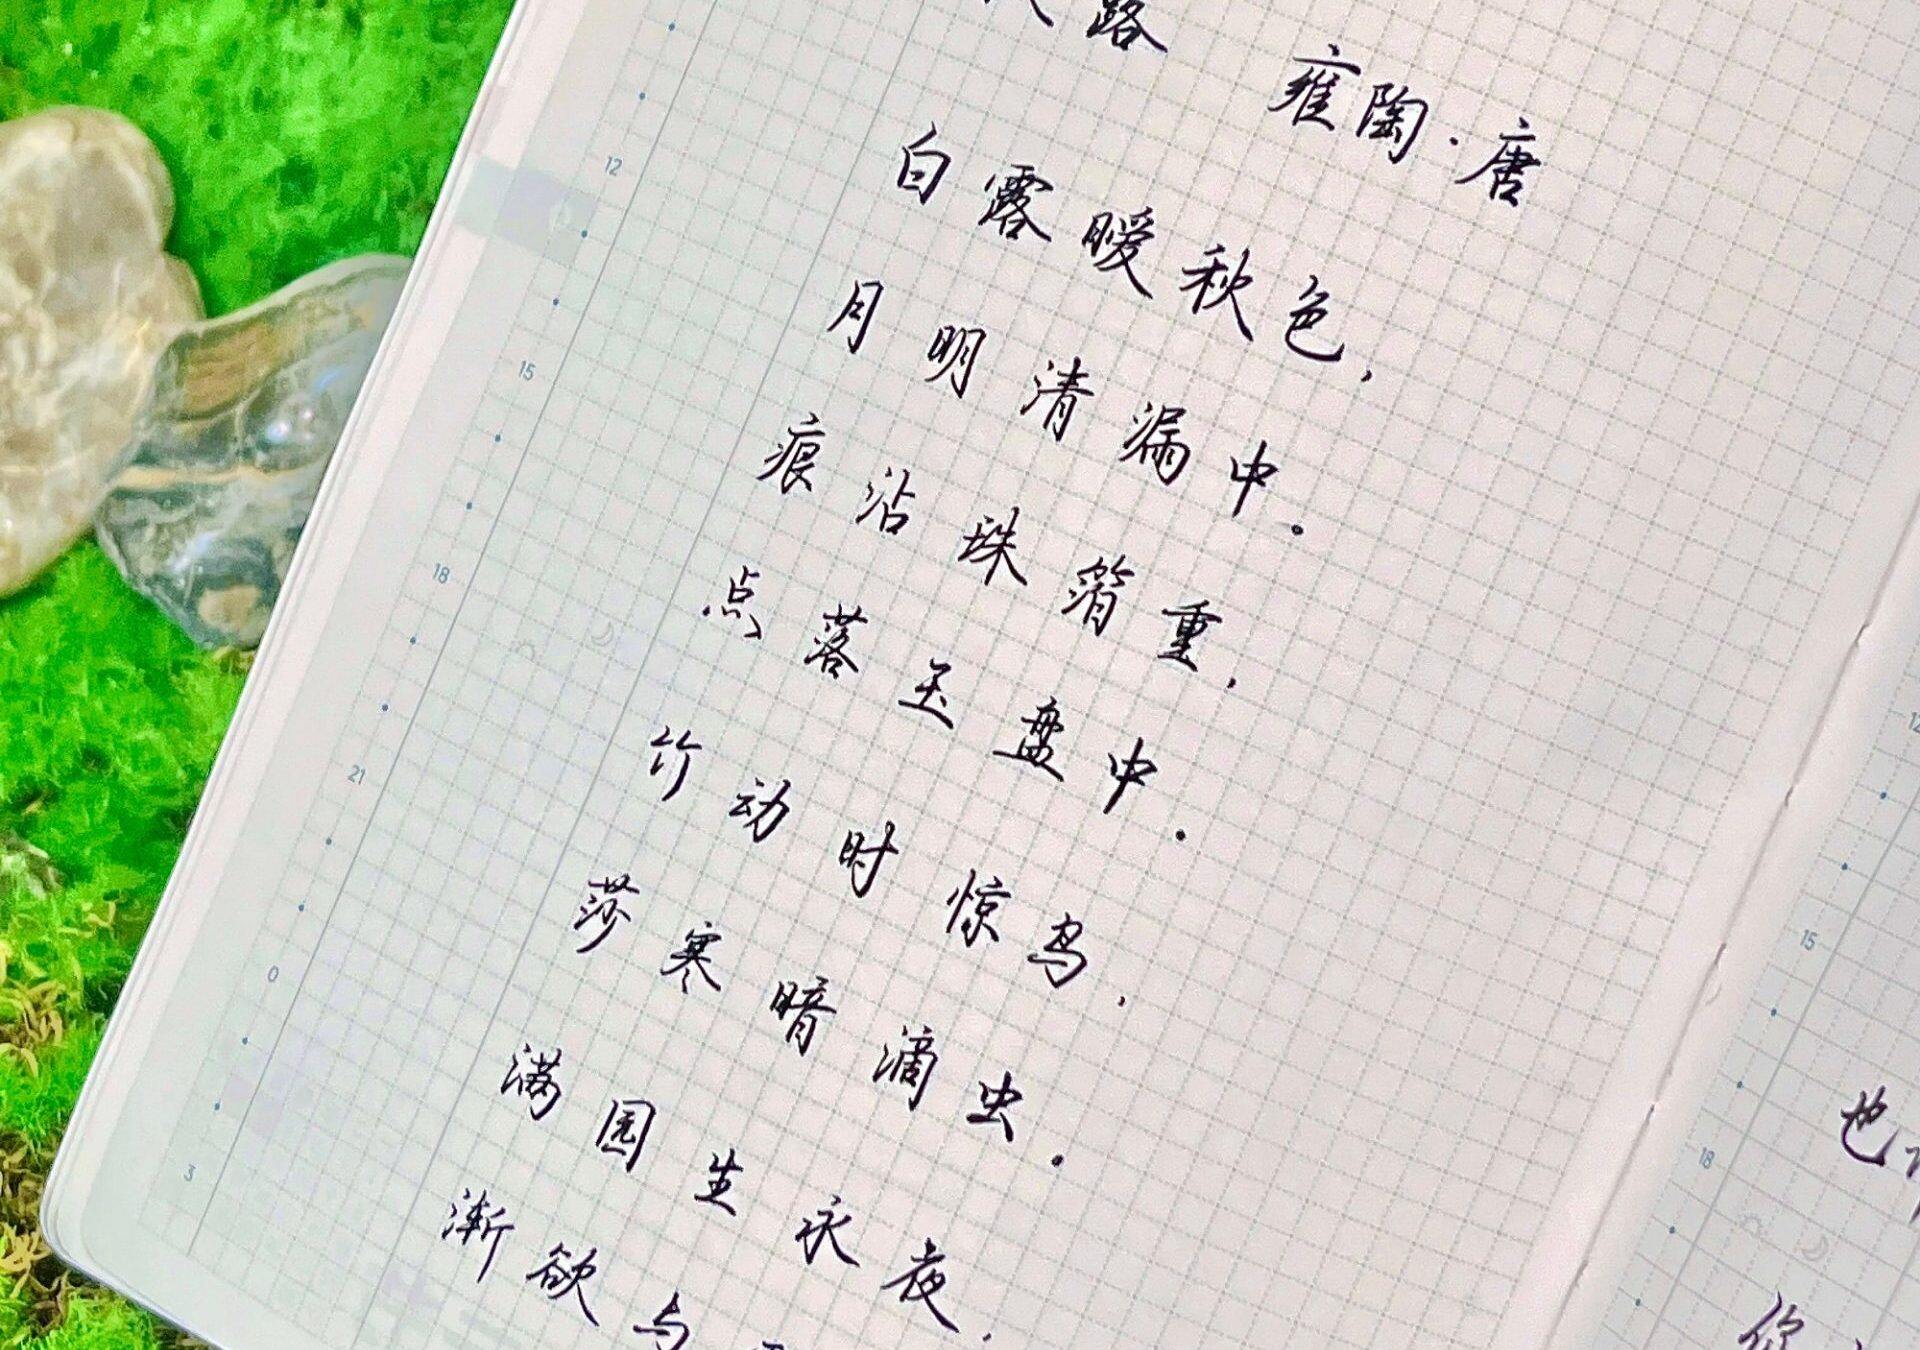 路 雍陶·唐
白露暧秋色，
月明清漏中。
痕沾珠箔重，
点落玉盘中.
竹动时惊鸟，
莎寒暗滴虫.
满园生永夜，
渐欲与
12
15
18
21
0
3
15
18
也
你